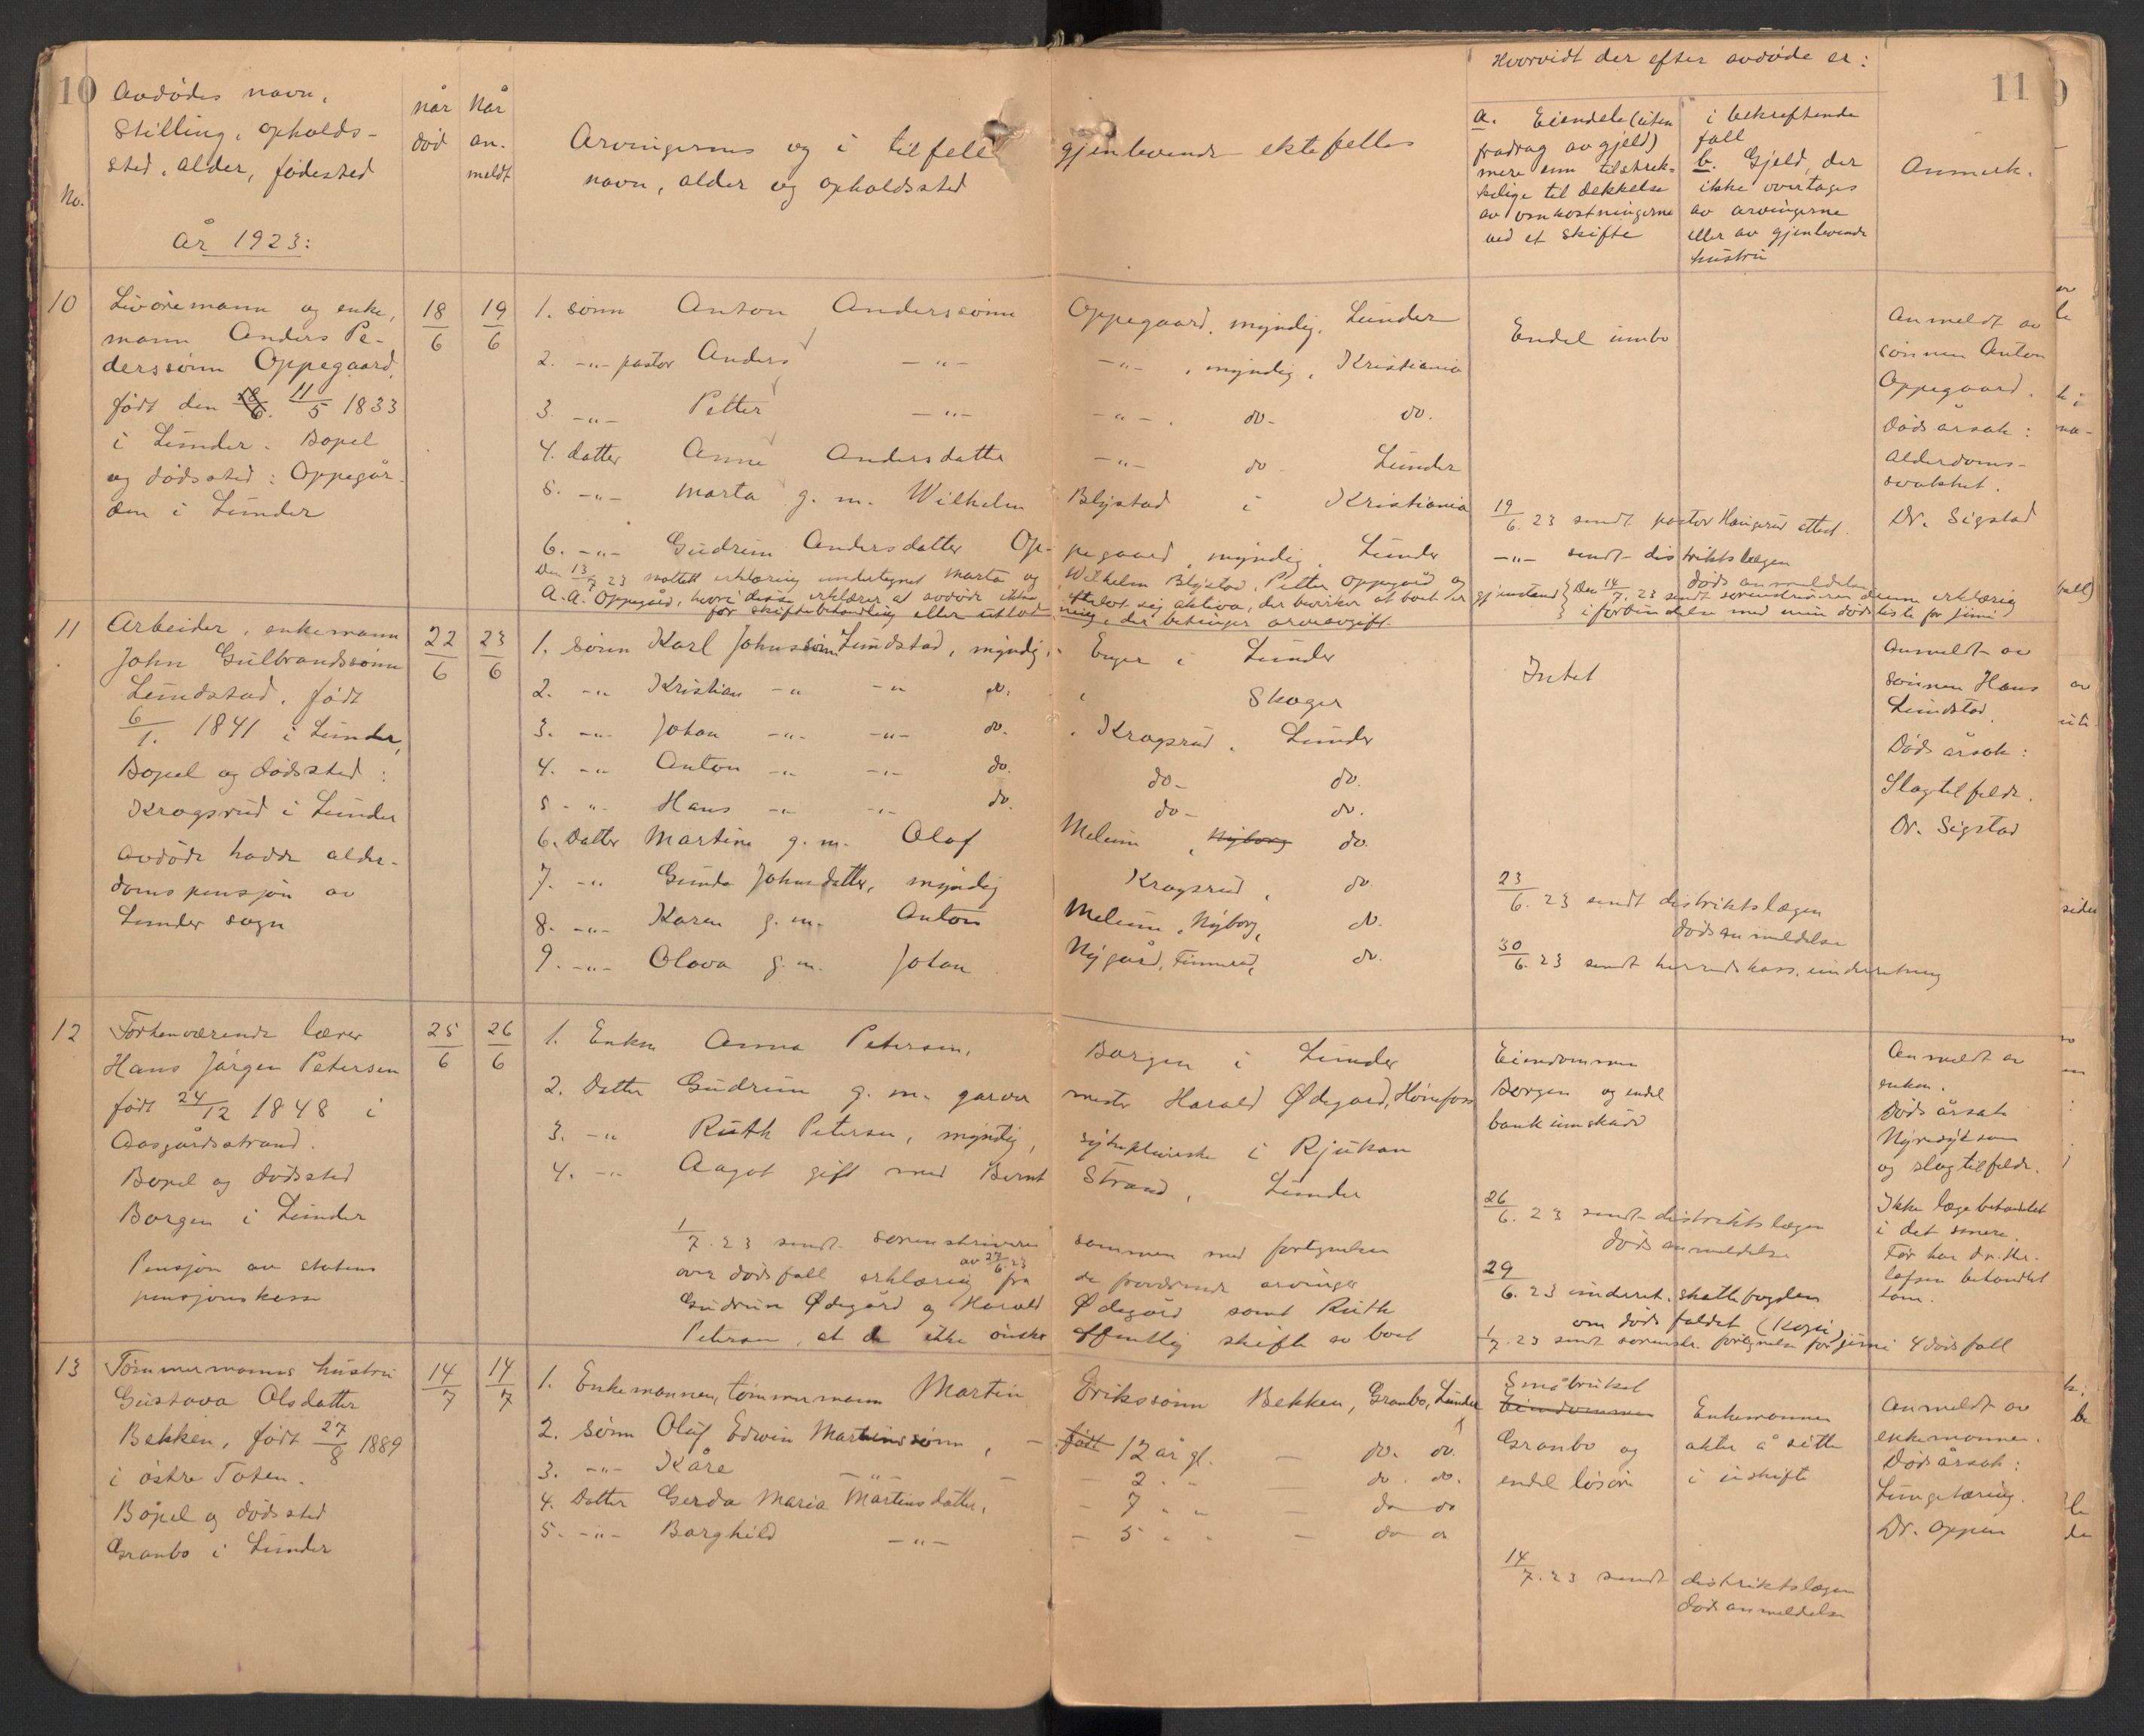 10
11
No.
Avdødes navn,
Stilling, opholds-
sted, alder, fødested
År 1923:
når
død
Når
an-
meldt
Arvingernes og i tilfelle gjenlevende ektefelles
navn, alder og opholdssted
Hvorvidt der efter avdøde er:
a. Eiendele (uten
fradrag av gjeld)
mere enn tilstrek-
kelige til dekkelse
av omkostningerne
ved et skifte
i bekreftende
fall
b. Gjeld, der
ikke overtages
av arvingerne
eller av gjenlevende
hustru
Anmerk.
10
mann og enke,
mann Anders Pe-
derssønn Oppegaard,
født den 11/5 1833
i Lunder. Bopel
og dødssted: Oppegår-
den i Lunder
18/6
19/6
1. sønn Anton Anderssønn Oppegaard, myndig, Lunder
2. -„- pastor Anders -„- -„- , myndig, Kristiania
3. -„- Petter -„- -„- . do. do.
4. datter Anne Andersdatter -„- do. Lunder
5. -„- Marta g. m. Wilhelm Blystad i Kristiania
6. -„- Gudrun Andersdatter Op-pegaard, myndig, Lunder
Den 13/7 23 mottatt erklæring undertegnet Marta og Wilhelm Blystad, Petter Oppegård og
A. A. Oppegård, hvori disse erklærer at avdøde ikke efterlot sig aktiva, der bevirker at boet er gjenstand
for skiftebehandling eller utlodning, der betinger arveavgift.
Endel innbo
19/6. 23 sendt pastor Haugerud attest.
-„- sendt distriktslægen
dødsanmeldelse
Den 14/7. 23 sendt sorenskriveren denne erklæring
i forbindelse med min dødsliste for juni
Anmeldt av
sønnen Anton
Oppegaard.
Dødsårsak:
Alderdoms-
svakhet.
Dr. Sigstad
11
Arbeider, enkemann
John Gulbrandssønn
Lundstad, født
6/1. 1841 i Lunder,
Bopel og dødssted:
Kragsrud i Lunder
Avdøde hadde alder-
domspensjon av
Lunder sogn
22/6
23/6
1. sønn Karl Johnssønn Lundstad, myndig, Enger i Lunder
2. -„- Kristian -„- -„- do. , Skoger
3. -„- Johan -„- -„- do. , Kragsrud, Lunder
4. -„- Anton -„- -„- do. do- do.
5. -„- Hans -„- -„- do. do- do.
6. Datter Martine g. m. Olaf Melum, Nyborg do.
7. -„- Gunda Johnsdatter, myndig Kragsrud, do.
8. -„- Karen g. m. Anton Melum, Nyborg, do.
9. -„- Olava g. m. Johan Nygård, Finnerud, do.
Intet
23/6. 23 sendt distriktslægen
dødsanmeldelse
30/6. 23 sendt herredskass. underretning
Anmeldt av
sønnen Hans
Lundstad.
Dødsårsak:
Slagtilfelde.
Dr. Sigstad
12
Forhenværende lærer
Hans Jørgen Petersen
født 24/12 1848 i
Aasgårdsstrand.
Bopel og dødssted
Borgen i Lunder
Pensjon av statens
pensjonskasse
25/6
26/6
1. Enken Anna Petersen, Borgen i Lunder
2. Datter Gudrun g. m. garver mester Harald Ødegård, Hønefoss
3. -„- Ruth Petersen, myndig, sykepleierske i Rjukan
4. -„- Aagot gift med Bernt Strand, Lunder
1/7. 23 sendt sorenskriveren sammen med fortegnelsen
over dødsfall erklæring av 27/6 23 fra de fraværende arvinger
Gudrun Ødegård og Harald Ødegård samt Ruth
Petersen, at de ikke ønsker offentlig skifte av boet
Eiendommen
Borgen og endel
bankinnskudd
26/6. 23 sendt distriktslægen
dødsanmeldelse
29/6. 23 underret. skattefogden
om dødsfaldet (Kopi)
1/7. 23 sendt sorenskr. fortegnelse for juni 4 dødsfall
Anmeldt av
enken.
Dødsårsak
Nyresykdom
og slagtilfelde.
Ikke lægebehandlet
i det senere.
Før har dr. Ste-
lefsen behandlet
ham.
13
Tømmermanns hustru
Gustava Olsdatter
Bekken, født 27/8 1889
i østre Toten.
Bopel og dødssted
Granbo i Lunder
14/7
14/7
1. Enkemannen, tømmermann Martin Erikssønn Bekken, Granbo, Lunder
2. Sønn Oluf Edwin Martinssønn, - født 12 år gl. - do. do.
3. -„- Kåre -„- - 2 - „ do. do.
4. Datter Gerda Maria Martinsdatter, - 7 - „ - do do
5. -„- Borghild -„- - 5 - „ - do do
Småbruket
Eiendommen
Granbo og
endel løsøre
Enkemannen
akter å sitte
i uskifte
14/7. 23 sendt distriktslægen
dødsanmeldelse
Anmeldt av
enkemannen.
Dødsårsak:
Lungetæring.
Dr. Oppen